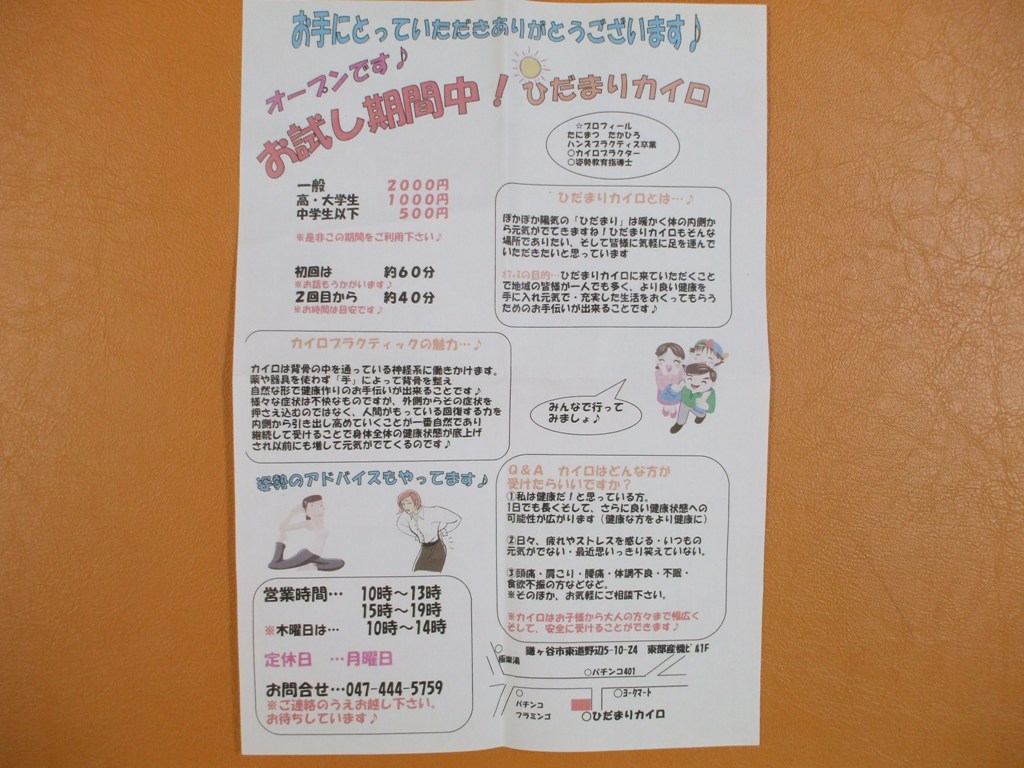 お手にとっていただきありがとうございます♪
オープンです♪
お試し期間中！
ひだまりカイロ
☆プロフィール
たにまつ　たかひろ
ハンズプラクティス卒業
○カイロプラクター
○姿勢教育指導士
一般　2000円
高・大学生　1000円
中学生以下　500円
※是非この期間をご利用下さい♪
初回は　約60分
※お話もうかがいます♪
2回目から　約40分
※お時間は目安です♪
ひだまりカイロとは…♪
ぽかぽか陽気の「ひだまり」は暖かく体の内側か
ら元気がでてきますね！ひだまりカイロもそんな
場所でありたい、そして皆様に気軽に足を運んで
いただきたいと思っています
の目的…ひだまりカイロに来ていただくこと
で地域の皆様が一人でも多く、より良い健康を
手に入れ元気で・充実した生活をおくってもらう
ためのお手伝いが出来ることです♪
カイロプラクティックの魅力…♪
カイロは背骨の中を通っている神経系に働きかけます。
薬や器具を使わず「手」によって背骨を整え
自然な形で健康作りのお手伝いが出来ることです♪
様々な症状は不快なものですが、外側からその症状を
押さえ込むのではなく、人間がもっている回復する力を
内側から引き出し高めていくことが一番自然であり
継続して受けることで身体全体の健康状態が底上げ
され以前にも増して元気がでてくるのです♪
みんなで行って
みましょ♪
姿勢のアドバイスもやってます♪
Q&A　カイロはどんな方が
受けたらいいですか？
①私は健康だ！と思っている方。
1日でも長くそして、さらに良い健康状態への
可能性が広がります（健康な方をより健康に）
②日々、疲れやストレスを感じる・いつもの
元気がでない・最近思いっきり笑えていない。
③頭痛・肩こり・腰痛・体調不良・不眠・
食欲不振の方などなど。
※そのほか、お気軽にご相談下さい。
※カイロはお子様から大人の方々まで幅広く
そして、安全に受けることができます♪
営業時間…　10時～13時
15時～19時
※木曜日は…　10時～14時
定休日　…月曜日
お問合せ…047-444-5759
※ご連絡のうえお越し下さい。
お待ちしています♪
鎌ヶ谷市東道野辺5-10-24　東部産機ﾋﾞﾙ1F
極楽湯
○パチンコ401
○ヨークマート
パチンコ
フラミンゴ
○ひだまりカイロ